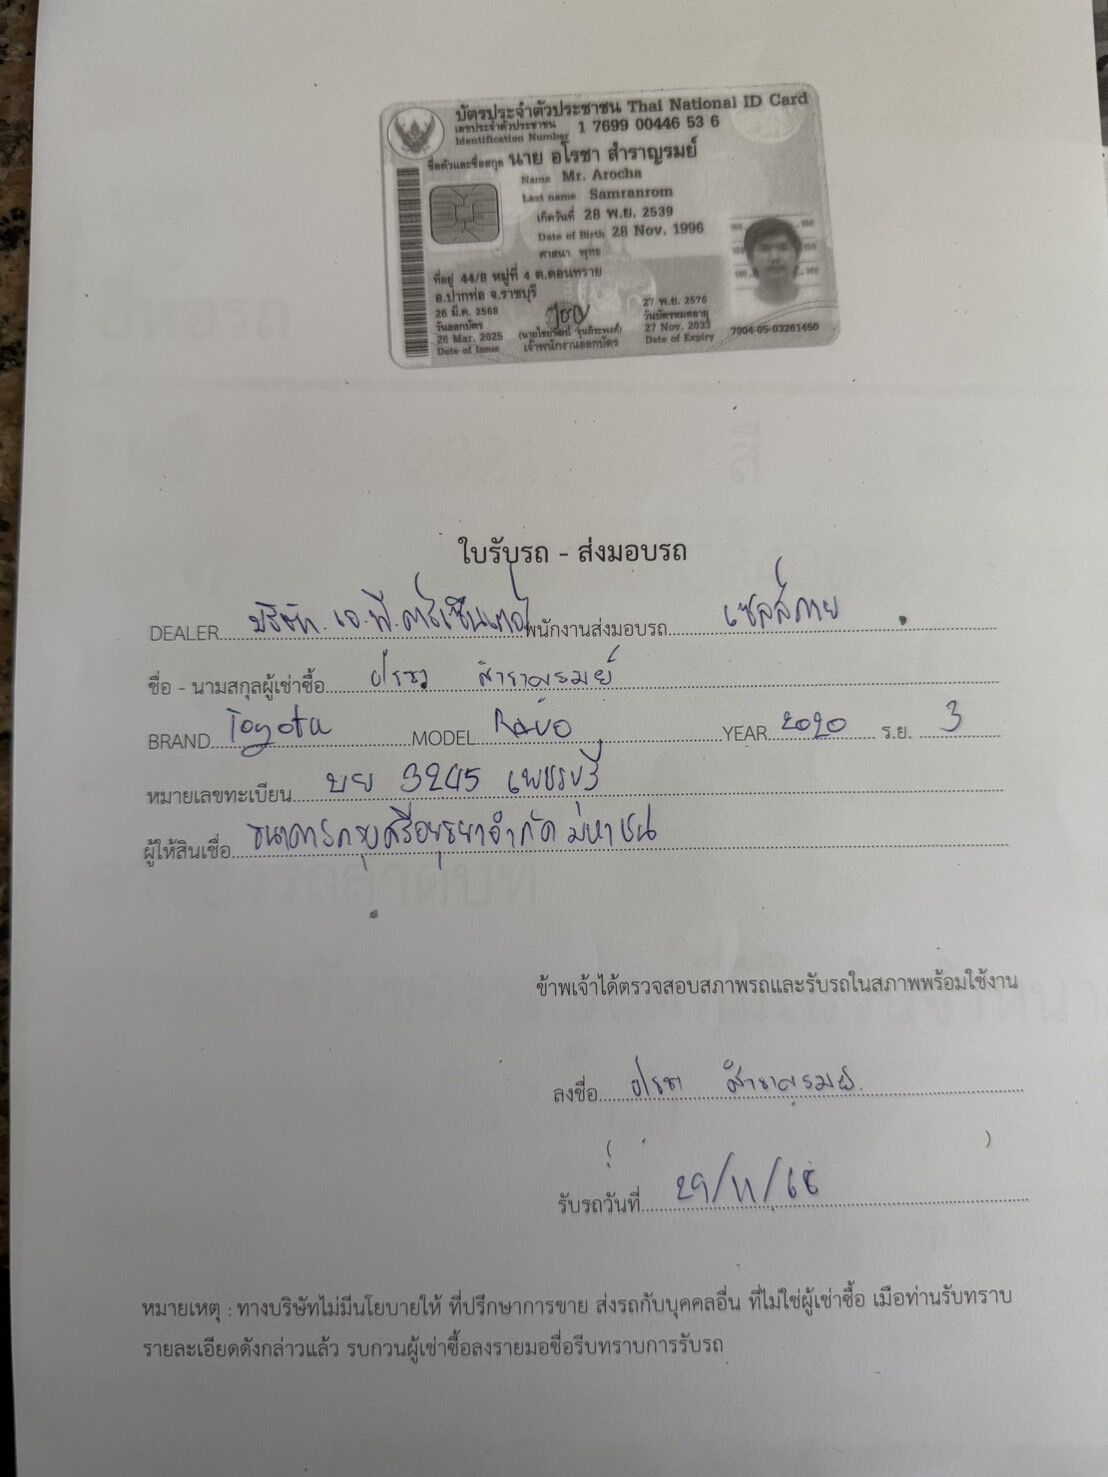 บัตรประจำตัวประชาชน Thai National ID Card
เลขประจำตัวประชาชน 1 7699 00446 53 6
Identification Number
ชื่อตัวและชื่อสกุล นาย อโรชา สำราญรมย์
Name Mr. Arocha
Last name Samranrom
เกิดวันที่ 28 พ.ย. 2539
Date of Birth 28 Nov. 1996
ศาสนา พุทธ
ที่อยู่ 44/8 หมู่ที่ 4 ต.ดอนทราย
อ.ปากท่อ จ.ราชบุรี
26 มี.ค. 2568
วันออกบัตร
26 Mar. 2025
Date of Issue
เจ้าพนักงานออกบัตร
27 พ.ย. 2576
วันบัตรหมดอายุ
27 Nov. 2033
Date of Expiry
7004-05-03261450
ใบรับรถ - ส่งมอบรถ
DEALER บริษัท. เอ.พี.คาร์เซ็นเตอร์ พนักงานส่งมอบรถ เซลล์กาย
ชื่อ - นามสกุลผู้เช่าซื้อ อโรชา สำราญรมย์
BRAND Toyota MODEL Revo YEAR 2020 ร.ย. 3
หมายเลขทะเบียน บย 3245 เพชรบุรี
ผู้ให้สินเชื่อ ธนาคารกรุงศรีอยุธยาจำกัด มหาชน
ข้าพเจ้าได้ตรวจสอบสภาพรถและรับรถในสภาพพร้อมใช้งาน
ลงชื่อ อโรชา สำราญรมย์.
( )
รับรถวันที่ 29/11/68
หมายเหตุ : ทางบริษัทไม่มีนโยบายให้ ที่ปรึกษาการขาย ส่งรถกับบุคคลอื่น ที่ไม่ใช่ผู้เช่าซื้อ เมือท่านรับทราบ
รายละเอียดดังกล่าวแล้ว รบกวนผู้เช่าซื้อลงรายมอชื่อรีบทราบการรับรถ